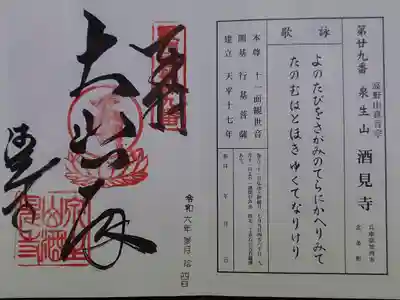 高野山真言宗
第廿九番 泉生山 酒見寺
詠歌
よのたびをさがみのてらにかへりみて
たのむはとほきゆくてなりけり
本尊 十一面観世音
開基 行基菩薩
建立 天平十七年
年 月 日
奉拝
大悲殿
酒見寺
令和六年 月拾四日